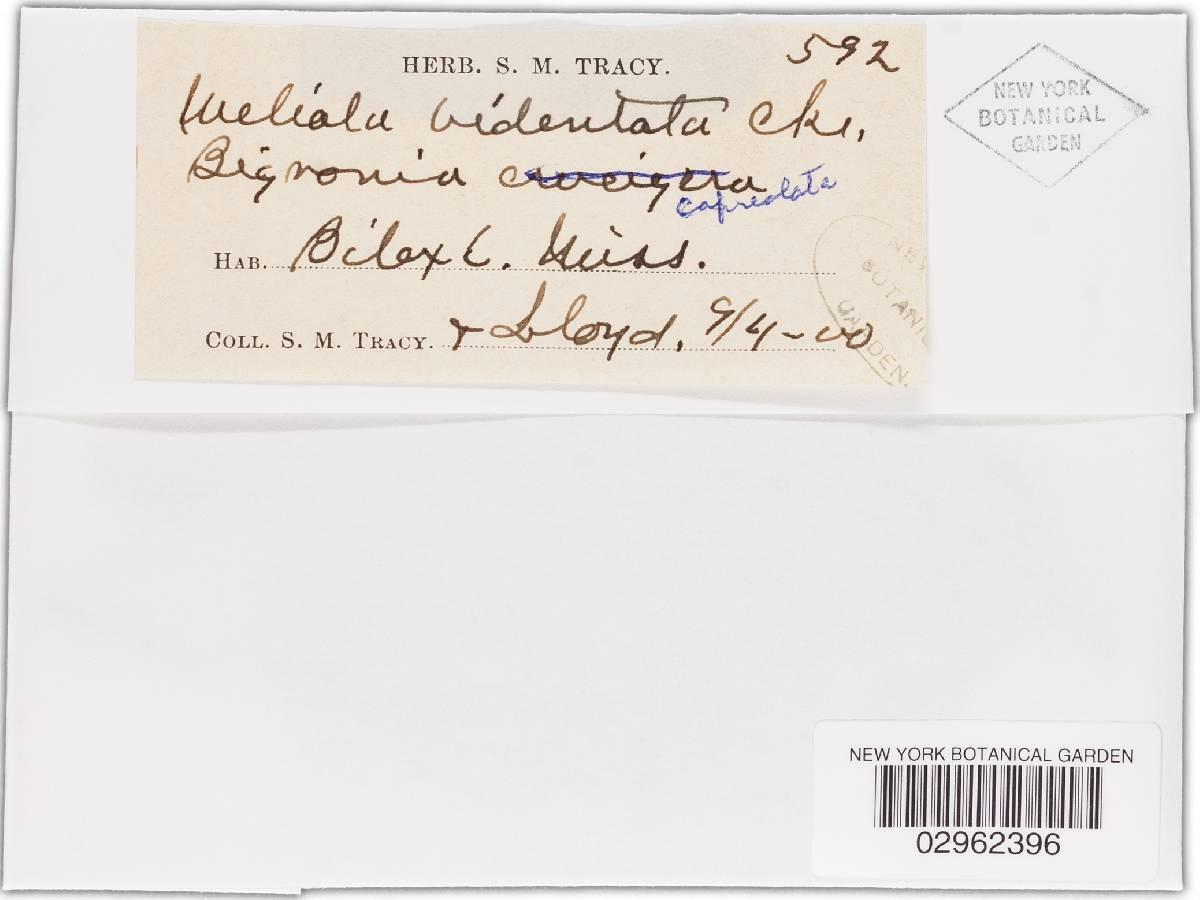 HERB. S. M. TRACY. 592
Meliola bidentata Cke.
Bignonia crucigera
capreolata
HAB. Biloxi. Miss.
COLL. S. M. TRACY. & Lloyd. 9/4-00
NEW YORK
BOTANICAL
GARDEN
NEW
BOTANIC
GARDEN.
NEW YORK BOTANICAL GARDEN
02962396